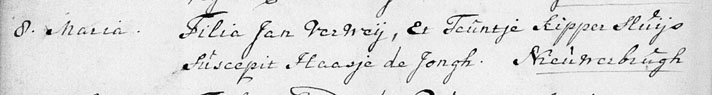 8. Maria. Filia Jan Verweij, Et Teuntje Kipper Sluijs
Suscepit Haasje de Jongh. Nieuwerbrugh